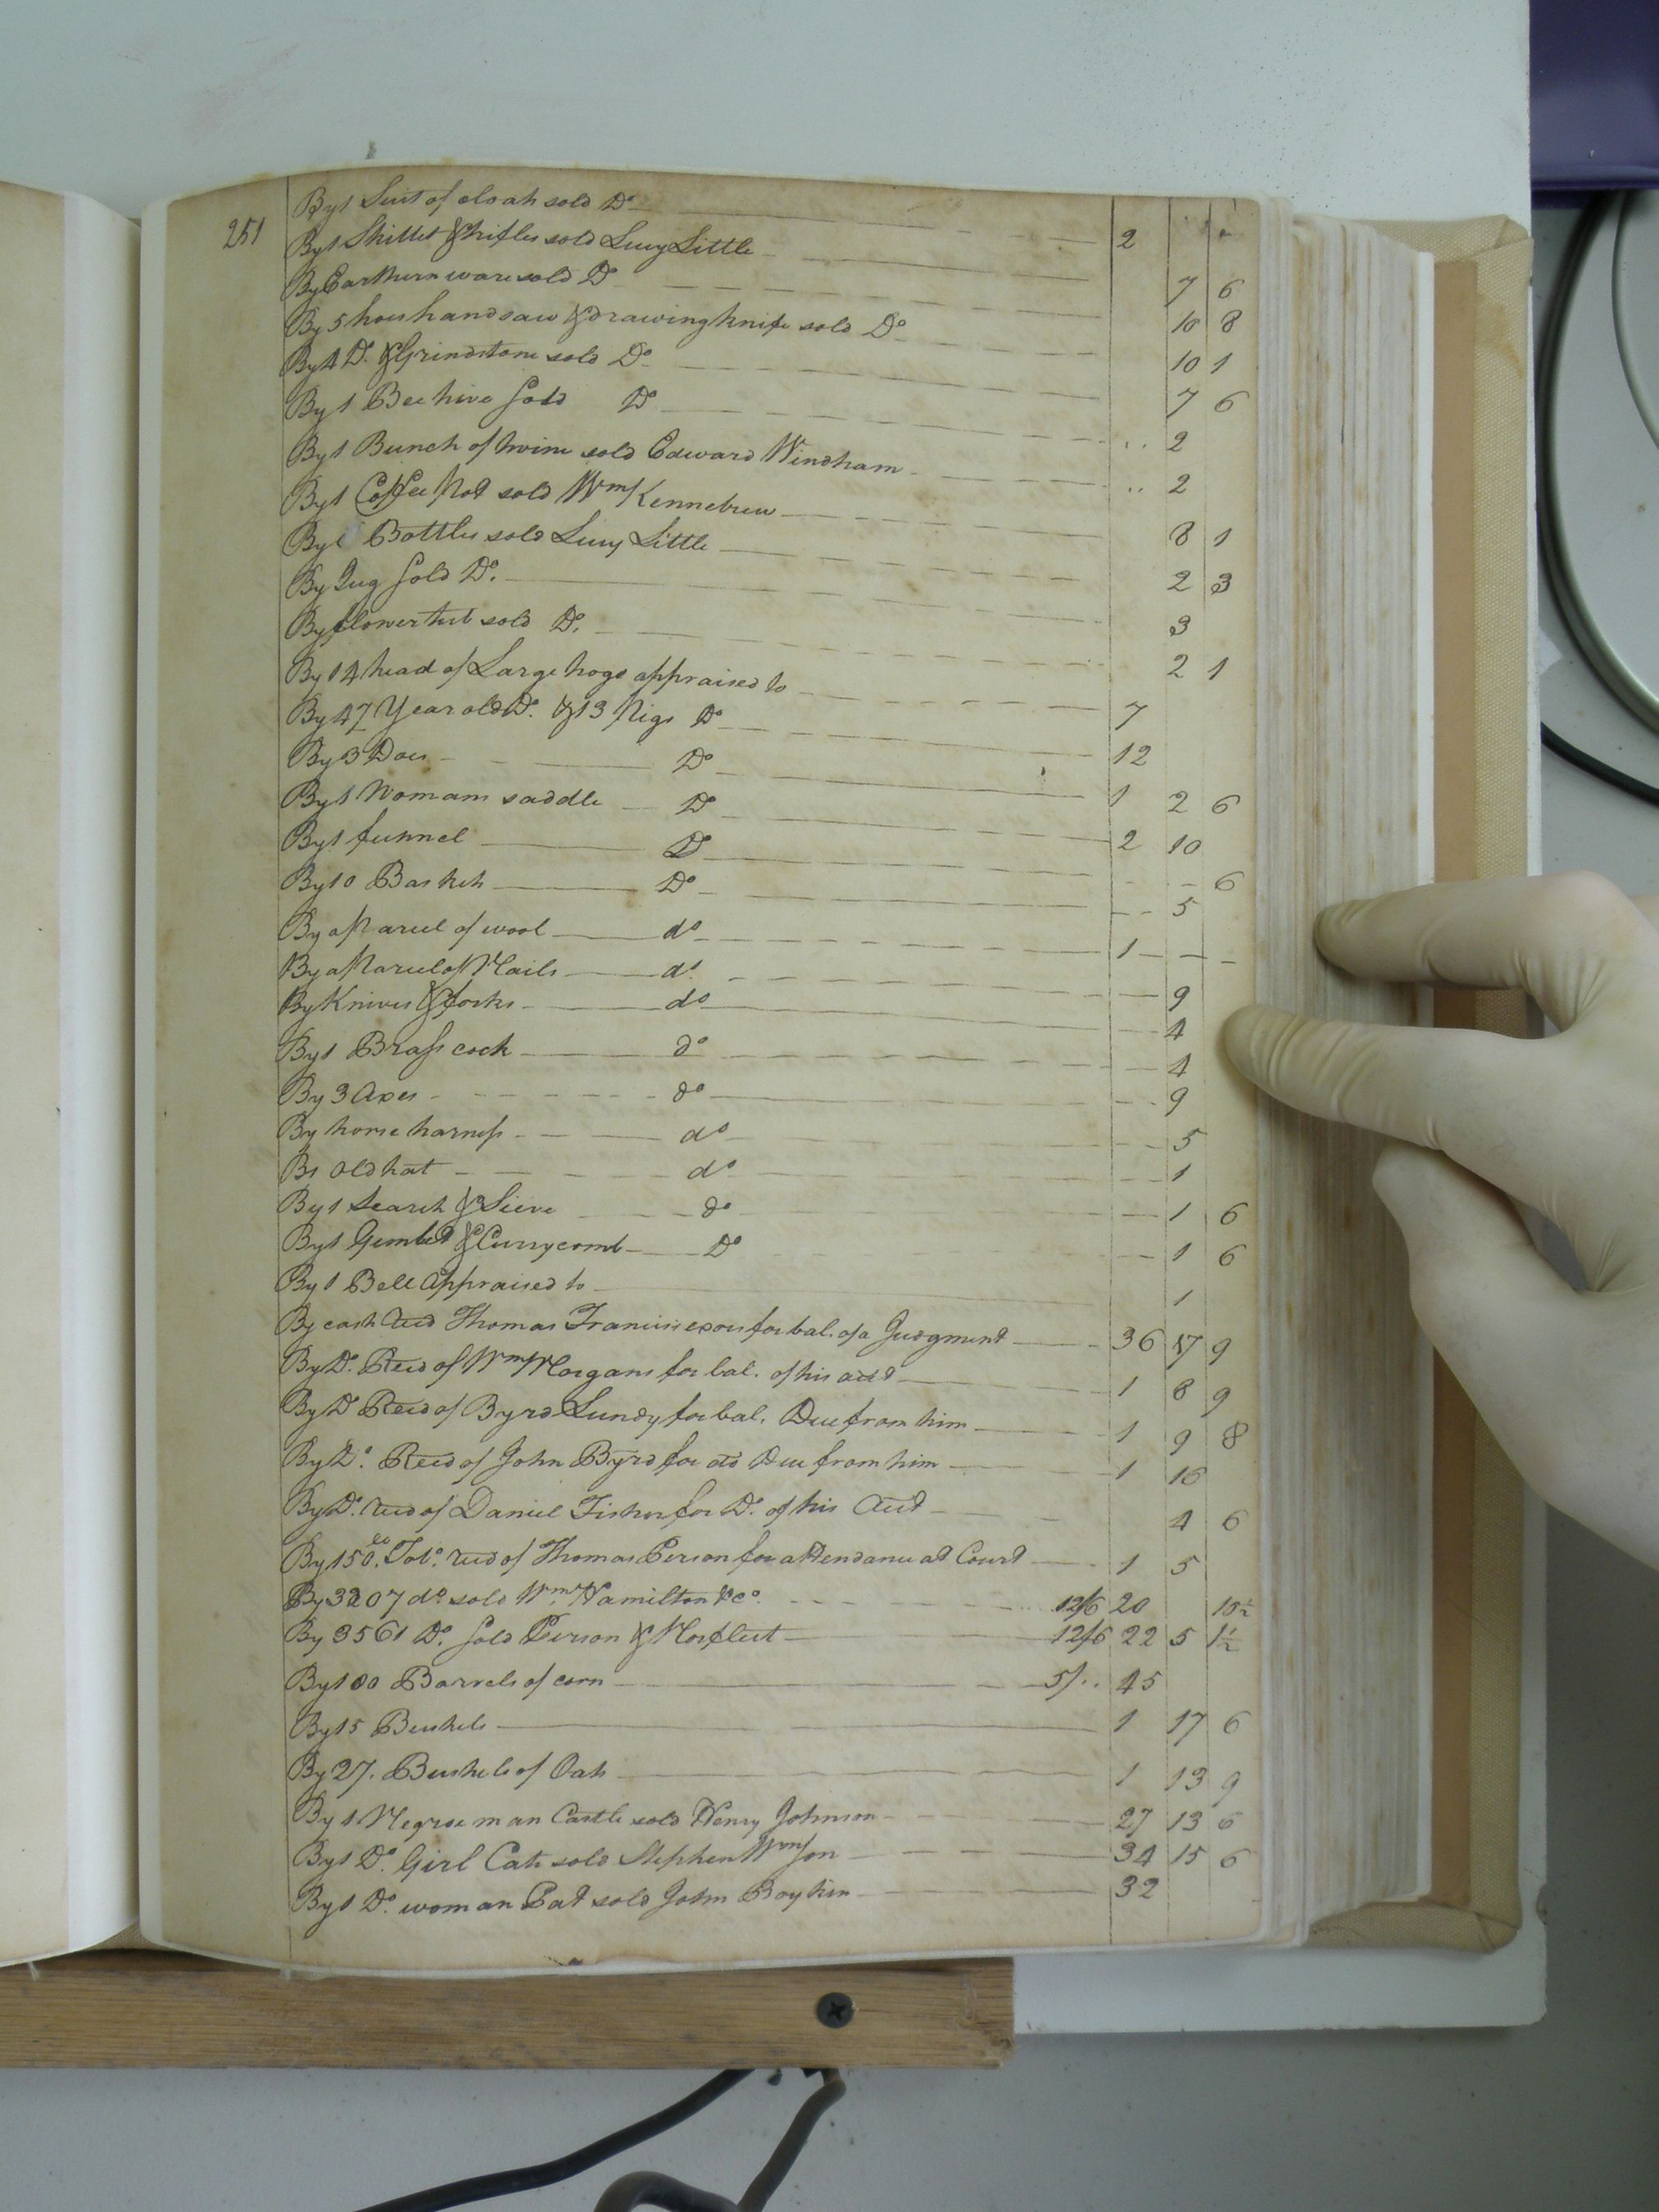 251
By 1 Suit of cloath sold Do 2
By 1 Skillet & trifles sold Lucy Little 7 6
By Earthern ware sold Do 10 8
By 5 hoes handsaw & drawing knife sold Do 10 1
By 4 Do. & Grindstone sold Do 7 6
By 1 Bee hive sold Do 2
By 1 Bunch of twine sold Edward Windham 2
By 1 Coffee Pot sold Wm Kennebrew 8 1
By Bottles sold Lucy Little 2 3
By Jug sold Do. 3
By flower tub sold Do. 2 1
By 14 head of Large hogs appraised to 7
By 47 Year old Do. & 13 Pigs Do 12
By 3 Does Do 1 2 6
By 1 Womans saddle Do 2 10
By 1 funnel Do 6
By 10 Baskets Do 5
By a Parcel of wool do 1
By a Parcel of Nails do 9
By Knives & forks do 4
By 1 Brass cock do 4
By 3 axes do 9
By horse harness do 5
By old hat do 1
By 1 Search & Sieve do 1 6
By 1 Gimbet & Currycomb Do 1 6
By 1 Bell appraised to 1
By cash Recd Thomas Francis exors for bal. of a Judgment 36 17 9
By Do. Recd of Wm Morgans for bal. of his acct 1 8 9
By Do Recd of Byrd Lundy for bal. Due from him 1 9 8
By Do. Recd of John Byrd for do Due from him 1 16
By Do. Recd of Daniel Fisher for Do. of his Acct 4 6
By 150 lb. Tobo. Recd of Thomas Person for attendance at Court 1 5
By 3207 do sold Wm. Hamilton & Co. 12/6 20 10½
By 3561 Do. sold Person & Norfleet 12/6 22 5 1½
By 180 Barrels of corn 5/.. 45
By 15 Bushels 1 17 6
By 27. Bushels of Oats 1 13 9
By 1 Negroe man Castle sold Henry Johnson 27 13 6
By 1 Do. Girl Cate sold Stephen Wmson 34 15 6
By 1 Do. woman Pat sold John Boykin 32